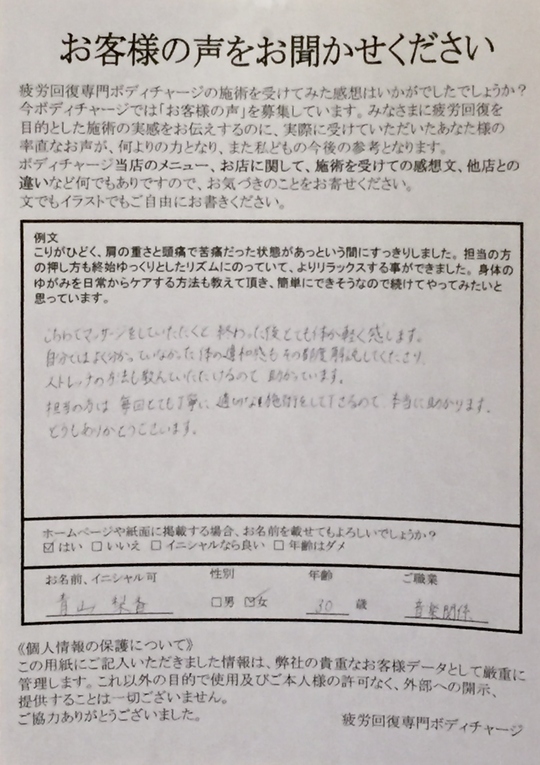 お客様の声をお聞かせください
疲労回復専門ボディチャージの施術を受けてみた感想はいかがでしたでしょうか?
今ボディチャージでは「お客様の声」を募集しています。みなさまに疲労回復を
目的とした施術の実感をお伝えするのに、実際に受けていただいたあなた様の
率直なお声が、何よりの力となり、また私どもの今後の参考となります。
ボディチャージ当店のメニュー、お店に関して、施術を受けての感想文、他店との
違いなど何でもありですので、お気づきのことをお寄せください。
文でもイラストでもご自由にお書きください。
例文
こりがひどく、肩の重さと頭痛で苦痛だった状態があっという間にすっきりしました。担当の方
の押し方も終始ゆっくりとしたリズムにのっていて、よりリラックスする事ができました。身体の
ゆがみを日常からケアする方法も教えて頂き、簡単にできそうなので続けてやってみたいと
思っています。
こちらでマッサージをしていただくと 終わった後とても体が軽く感じます。
自分ではよく分かっていなかった体の違和感もその都度解説してくださり
ストレッチの方法も教えていただけるので 助かっています。
担当の方は 毎回とても丁寧に、適切な施術をして下さるので、本当に助かります。
どうもありがとうございます。
ホームページや紙面に掲載する場合、お名前を載せてもよろしいでしょうか?
☑はい □いいえ □イニシャルなら良い □年齢はダメ
お名前、イニシャル可 性別 年齢 ご職業
青山 梨香 □男 ☑女 30 歳 音楽関係
《個人情報の保護について》
この用紙にご記入いただきました情報は、弊社の貴重なお客様データとして厳重に
管理します。これ以外の目的で使用及びご本人様の許可なく、外部への開示、
提供することは一切ございません。
ご協力ありがとうございました。
疲労回復専門ボディチャージ